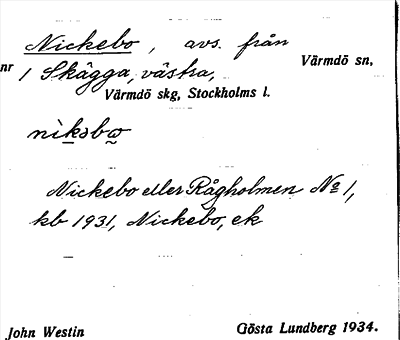 Nickebo, avs. från
nr 1 Skägga, västra, Värmdö sn,
Värmdö skg, Stockholms l.
nìkəbω
Nickebo eller Rågholmen No 1,
kb 1931, Nickebo, ek
John Westin Gösta Lundberg 1934.